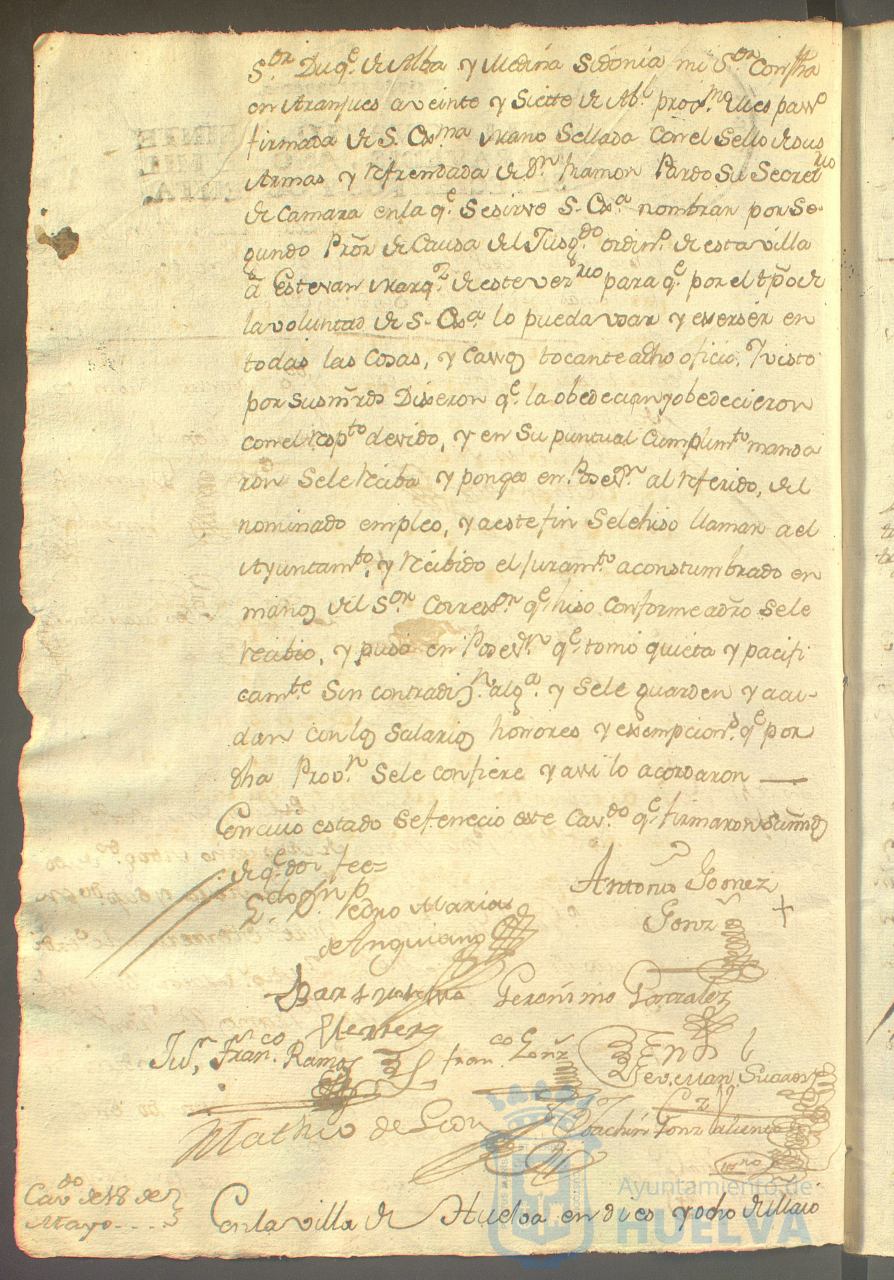 S.or Duq.e de Alba y Medina Sidonia mi S.or Con fha
en Aranjues a veinte y Siette de Ab.l prox.mo
firmada de S. Ex.ma mano Sellada con el Sello de sus
Armas y Refrendada de D.n Ramon Pardo Su Secret.rio
de Camara en la q.e Se sirve S. Ex.a nombrar por Se-
gundo Pror de Causa del Jusg.do ordin.o de esta villa
a Estevan Marq.z de este vez.rio para q.e por el tpo de
la voluntad de S. Ex.a lo pueda usar y exerser en
todas las Cosas, y Casos tocante a dho oficio. Y visto
por Sus mrds Dixeron q.e la obedecian y obedecieron
con el Resp.to devido, y en Su puntual Cumplim.to manda
ron Se le Reciba y ponga en Poses.n al Referido, del
nominado empleo, y a este fin Se le hiso llamar a el
Ayuntam.to, y Recibido el Juram.to acostumbrado en
manos del S.or Correx.or q.e hiso conforme a dro Se le
Recibio, y puso en Poses.n q.e tomó quieta y pacifi
cam.te Sin contradiz.n alg.a y Se le guarden y acu-
dan con los Salarios honores y exempcion.s q.e por
dha Prov.n Se le confiere y assi lo acordaron
En cuio estado Se fenecio este Cav.do q.e firmaron Sus mds
de q.e doi fee=
Pedro Marias
de Anguiano
Antonio Gomez
Gonz
Geronimo Gonzalez
Herrera
Fran.co Ramos
Fran.co Gonz
Estevan Suarez
Mathio de Leon
Joachin Gonz Valiente
Cav.do de 18 de
Mayo
En la villa de Huelva en dies y ocho de Maio
Ayuntamiento de
HUELVA